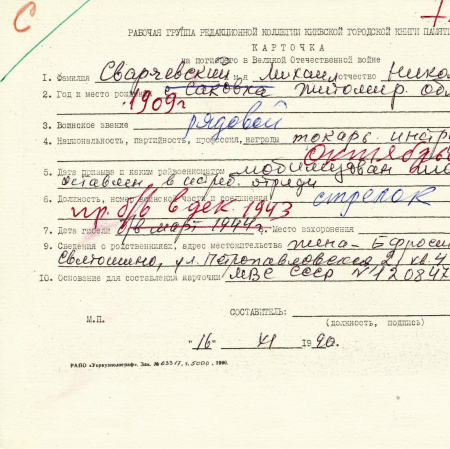 С
РАБОЧАЯ ГРУППА РЕДАКЦИОННОЙ КОЛЛЕГИИ КИЕВСКОЙ ГОРОДСКОЙ КНИГИ ПАМЯТИ
КАРТОЧКА
на погибшего в Великой Отечественной войне
1. Фамилия Сварчевский имя Михаил отчество Никол
2. Год и место рождения с Саковка Житомир. обл
1909г
3. Воинское звание рядовой
4. Национальность, партийность, профессия, награды токарь. инстр
Октябрь
5. Дата призыва и каким райвоенкоматом мобилизован
оставлен в истреб. отряде
6. Должность, номер воинской части и соединения стрелок
пр. б/в в дек. 1943
7. Дата гибели б/в март 1944г. Место захоронения
9. Сведения о родственниках, адрес местожительства жена - Ефроси
Святошино, ул. Петропавловская 2, кв. 4
10. Основание для составления карточки МВС СССР № 120847
СОСТАВИТЕЛЬ:
М.П.
(должность, подпись)
"16" XI 1990.
РАПО «Укрвузполиграф». Зак. № 03317, т. 5000, 1990.